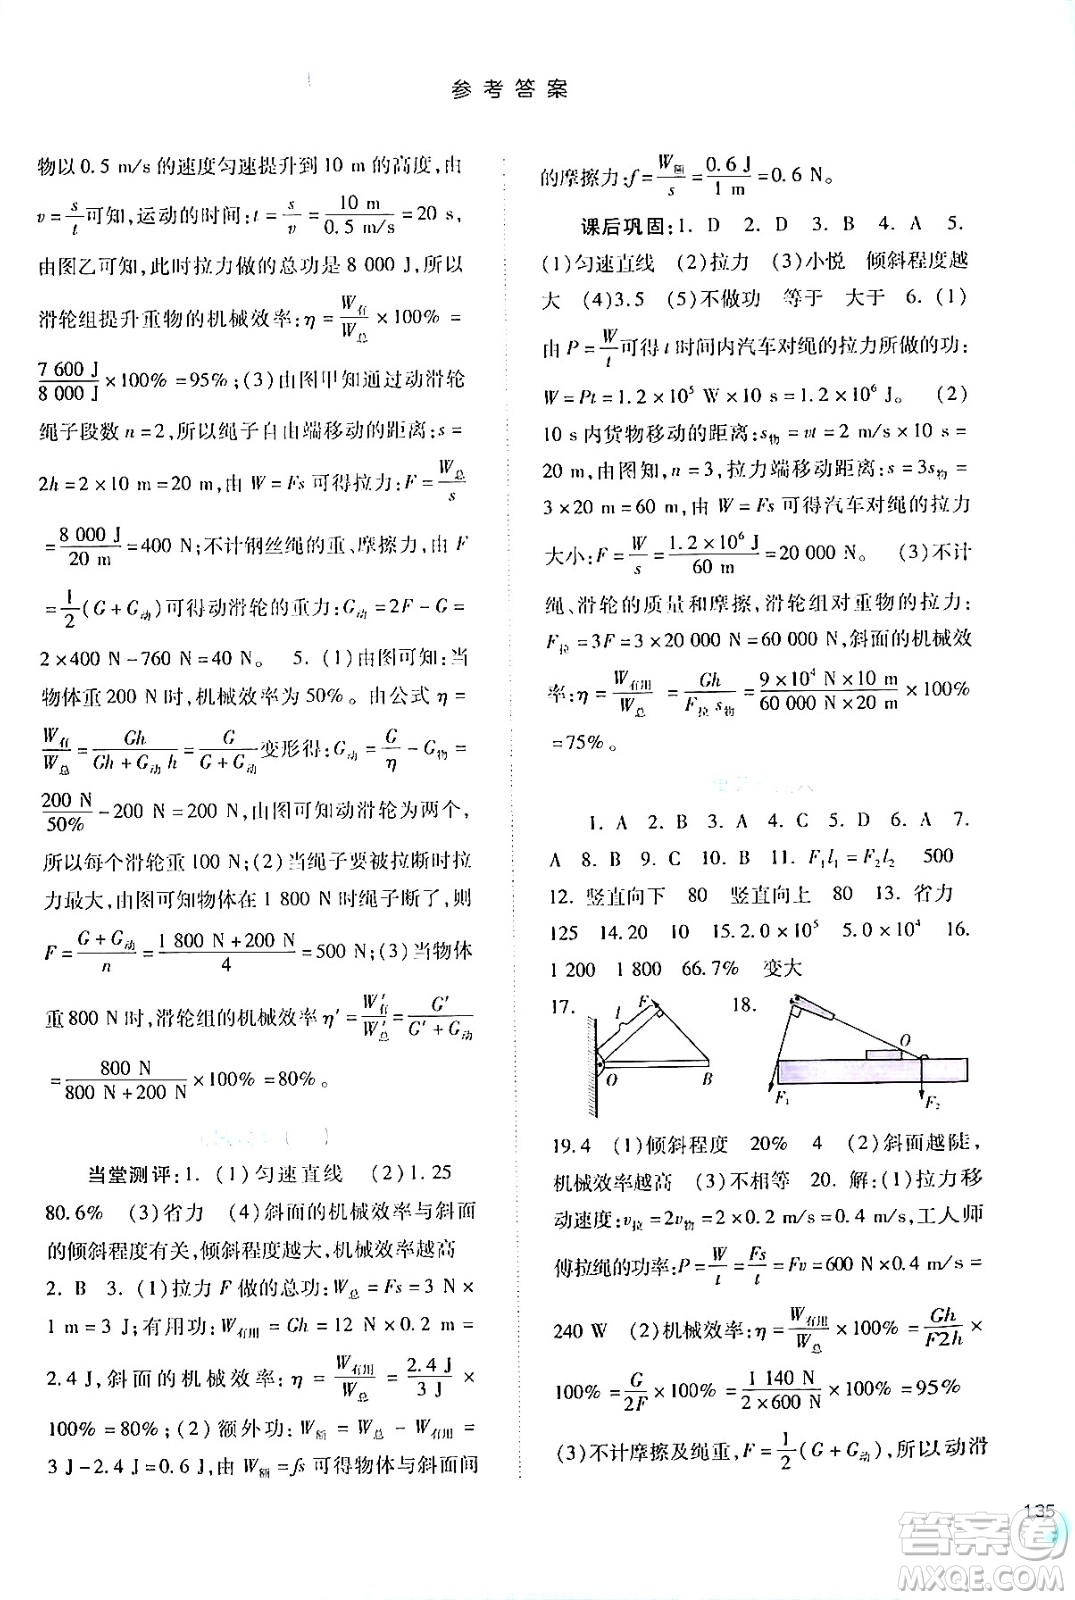 参考答案
物以 0.5 m/s 的速度匀速提升到 10 m 的高度,由
v=s/t可知,运动的时间:t=s/v=10 m/0.5 m/s=20 s,
由图乙可知,此时拉力做的总功是 8 000 J,所以
滑轮组提升重物的机械效率:η=W有/W总×100%=
7 600 J/8 000 J×100%=95%;(3)由图甲知通过动滑轮
绳子段数 n=2,所以绳子自由端移动的距离:s=
2h=2×10 m=20 m,由 W=Fs 可得拉力:F=W总/s
=8 000 J/20 m=400 N;不计钢丝绳的重、摩擦力,由 F
=1/2(G+G动)可得动滑轮的重力:G动=2F-G=
2×400 N-760 N=40 N。 5.(1)由图可知:当
物体重 200 N 时,机械效率为 50%。由公式 η=
W有/W总=Gh/Gh+G动h=G/G+G动变形得:G动=G/η-G物=
200 N/50%-200 N=200 N,由图可知动滑轮为两个,
所以每个滑轮重 100 N;(2)当绳子要被拉断时拉
力最大,由图可知物体在 1 800 N 时绳子断了,则
F=G+G动/n=1 800 N+200 N/4=500 N;(3)当物体
重 800 N 时,滑轮组的机械效率 η′=W′有/W′总=G′/G′+G动
=800 N/800 N+200 N×100%=80%。
当堂测评:1.(1)匀速直线 (2)1.25
80.6% (3)省力 (4)斜面的机械效率与斜面
的倾斜程度有关,倾斜程度越大,机械效率越高
2. B 3.(1)拉力 F 做的总功:W总=Fs=3 N×
1 m=3 J;有用功:W有用=Gh=12 N×0.2 m=
2.4 J,斜面的机械效率:η=W有用/W总=2.4 J/3 J×
100%=80%;(2)额外功:W额=W总-W有用=
3 J-2.4 J=0.6 J,由 W额=fs 可得物体与斜面间
的摩擦力:f=W额/s=0.6 J/1 m=0.6 N。
课后巩固:1. D 2. D 3. B 4. A 5.
(1)匀速直线 (2)拉力 (3)小悦 倾斜程度越
大 (4)3.5 (5)不做功 等于 大于 6.(1)
由 P=W/t可得 t 时间内汽车对绳的拉力所做的功:
W=Pt=1.2×10⁵ W×10 s=1.2×10⁶ J。 (2)
10 s 内货物移动的距离:s物=vt=2 m/s×10 s=
20 m,由图知,n=3,拉力端移动距离:s=3s物=
3×20 m=60 m,由 W=Fs 可得汽车对绳的拉力
大小:F=W/s=1.2×10⁶ J/60 m=20 000 N。 (3)不计
绳、滑轮的质量和摩擦,滑轮组对重物的拉力:
F拉=3F=3×20 000 N=60 000 N,斜面的机械效
率:η=W有用/W总=Gh/F拉s物=9×10⁴ N×10 m/60 000 N×20 m×100%
=75%。
1. A 2. B 3. A 4. C 5. D 6. A 7.
A 8. B 9. B 10. B 11. F₁l₁=F₂l₂ 500
12. 竖直向下 80 竖直向上 80 13. 省力
125 14. 20 10 15. 2.0×10⁵ 5.0×10⁴ 16.
1 200 1 800 66.7% 变大
17. l F O B 18. O F₁ F₂
19. 4 (1)倾斜程度 20% 4 (2)斜面越陡,
机械效率越高 (3)不相等 20. 解:(1)拉力移
动速度:v拉=2v物=2×0.2 m/s=0.4 m/s,工人师
傅拉绳的功率:P=W/t=Fs/t=Fv=600 N×0.4 m/s=
240 W (2)机械效率:η=W有用/W总×100%=Gh/F2h×
100%=G/2F×100%=1 140 N/2×600 N×100%=95%
(3)不计摩擦及绳重,F=1/2(G+G动),所以动滑
135
答案卷
MXQE.COM